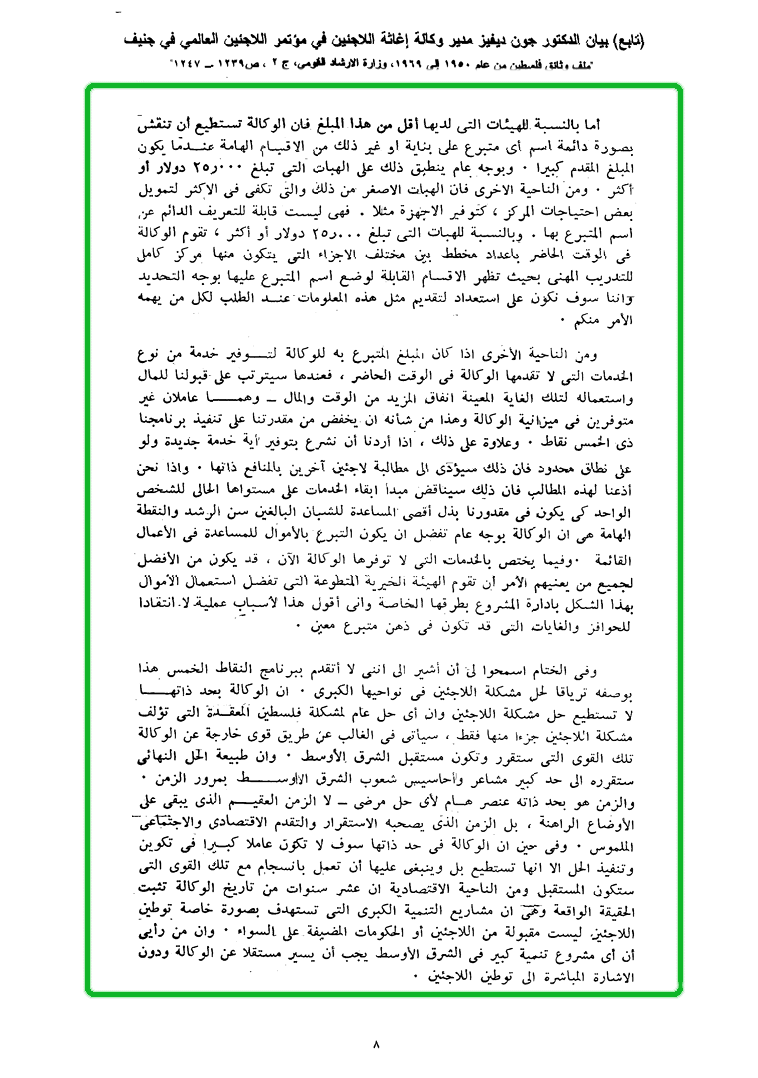 (تابع) بيان الدكتور جون ديفيز مدير وكالة إغاثة اللاجئين في مؤتمر اللاجئين العالمي في جنيف
"ملف وثائق فلسطين من عام ١٩٥٠ إلى ١٩٦٩، وزارة الارشاد القومي، ج ٢ ، ص ١٢٣٩ – ١٢٤٧"
أما بالنسبة للهيئات التى لديها أقل من هذا المبلغ فان الوكالة تستطيع أن تنقش
بصورة دائمة اسم أى متبرع على بناية او غير ذلك من الاقسام الهامة عندما يكون
المبلغ المقدم كبيرا ٠ وبوجه عام ينطبق ذلك على الهبات التى تبلغ ٢٥٫٠٠٠ دولار أو
أكثر ٠ ومن الناحية الاخرى فان الهبات الاصغر من ذلك والتى تكفى فى الاكثر لتمويل
بعض احتياجات المركز ، كتوفير الاجهزة مثلا ٠ فهى ليست قابلة للتعريف الدائم عن
اسم المتبرع بها ٠ وبالنسبة للهبات التى تبلغ ٢٥٫٠٠٠ دولار أو أكثر ، تقوم الوكالة
فى الوقت الحاضر باعداد مخطط بين مختلف الاجزاء التى يتكون منها مركز كامل
للتدريب المهنى بحيث تظهر الاقسام القابلة لوضع اسم المتبرع عليها بوجه التحديد
واننا سوف نكون على استعداد لتقديم مثل هذه المعلومات عند الطلب لكل من يهمه
الأمر منكم ٠
ومن الناحية الأخرى اذا كان المبلغ المتبرع به للوكالة لتوفير خدمة من نوع
الخدمات التى لا تقدمها الوكالة فى الوقت الحاضر ، فعندها سيترتب على قبولنا للمال
واستعماله لتلك الغاية المعينة انفاق المزيد من الوقت والمال ــ وهما عاملان غير
متوفرين فى ميزانية الوكالة وهذا من شأنه ان يخفض من مقدرتنا على تنفيذ برنامجنا
ذى الخمس نقاط ٠ وعلاوة على ذلك ، اذا أردنا أن نشرع بتوفير أية خدمة جديدة ولو
على نطاق محدود فان ذلك سيؤدى الى مطالبة لاجئين آخرين بالمنافع ذاتها ٠ واذا نحن
أذعنا لهذه المطالب فان ذلك سيناقض مبدأ ابقاء الخدمات على مستواها الحالى للشخص
الواحد كى يكون فى مقدورنا بذل أقصى المساعدة للشبان البالغين سن الرشد والنقطة
الهامة هى ان الوكالة بوجه عام تفضل ان يكون التبرع بالأموال للمساعدة فى الأعمال
القائمة ٠ وفيما يختص بالخدمات التى لا توفرها الوكالة الآن ، قد يكون من الأفضل
لجميع من يعنيهم الأمر ان تقوم الهيئة الخيرية المتطوعة التى تفضل استعمال الأموال
بهذا الشكل بادارة المشروع بطرقها الخاصة وانى أقول هذا لأسباب عملية لا انتقادا
للحوافز والغايات التى قد تكون فى ذهن متبرع معين ٠
وفى الختام اسمحوا لى أن أشير الى اننى لا أتقدم ببرنامج النقاط الخمس هذا
بوصفه ترياقا لحل مشكلة اللاجئين فى نواحيها الكبرى ٠ ان الوكالة بحد ذاتها
لا تستطيع حل مشكلة اللاجئين وان أى حل عام لمشكلة فلسطين المعقدة التى تؤلف
مشكلة اللاجئين جزءا منها فقط ، سيأتى فى الغالب عن طريق قوى خارجة عن الوكالة
تلك القوى التى ستقرر وتكون مستقبل الشرق الأوسط ٠ وان طبيعة الحل النهائى
ستقرره الى حد كبير مشاعر وأحاسيس شعوب الشرق الأوسط بمرور الزمن ٠
والزمن هو بحد ذاته عنصر هام لأى حل مرضى ــ لا الزمن العقيم الذى يبقى على
الأوضاع الراهنة ، بل الزمن الذى يصحبه الاستقرار والتقدم الاقتصادى والاجتماعى
الملموس ٠ وفى حين ان الوكالة فى حد ذاتها سوف لا تكون عاملا كبيرا فى تكوين
وتنفيذ الحل الا انها تستطيع بل وينبغى عليها أن تعمل بانسجام مع تلك القوى التى
ستكون المستقبل ومن الناحية الاقتصادية ان عشر سنوات من تاريخ الوكالة تثبت
الحقيقة الواقعة وهى ان مشاريع التنمية الكبرى التى تستهدف بصورة خاصة توطين
اللاجئين ليست مقبولة من اللاجئين أو الحكومات المضيفة على السواء ٠ وان من رأيى
أن أى مشروع تنمية كبير فى الشرق الأوسط يجب أن يسير مستقلا عن الوكالة ودون
الاشارة المباشرة الى توطين اللاجئين ٠
٨